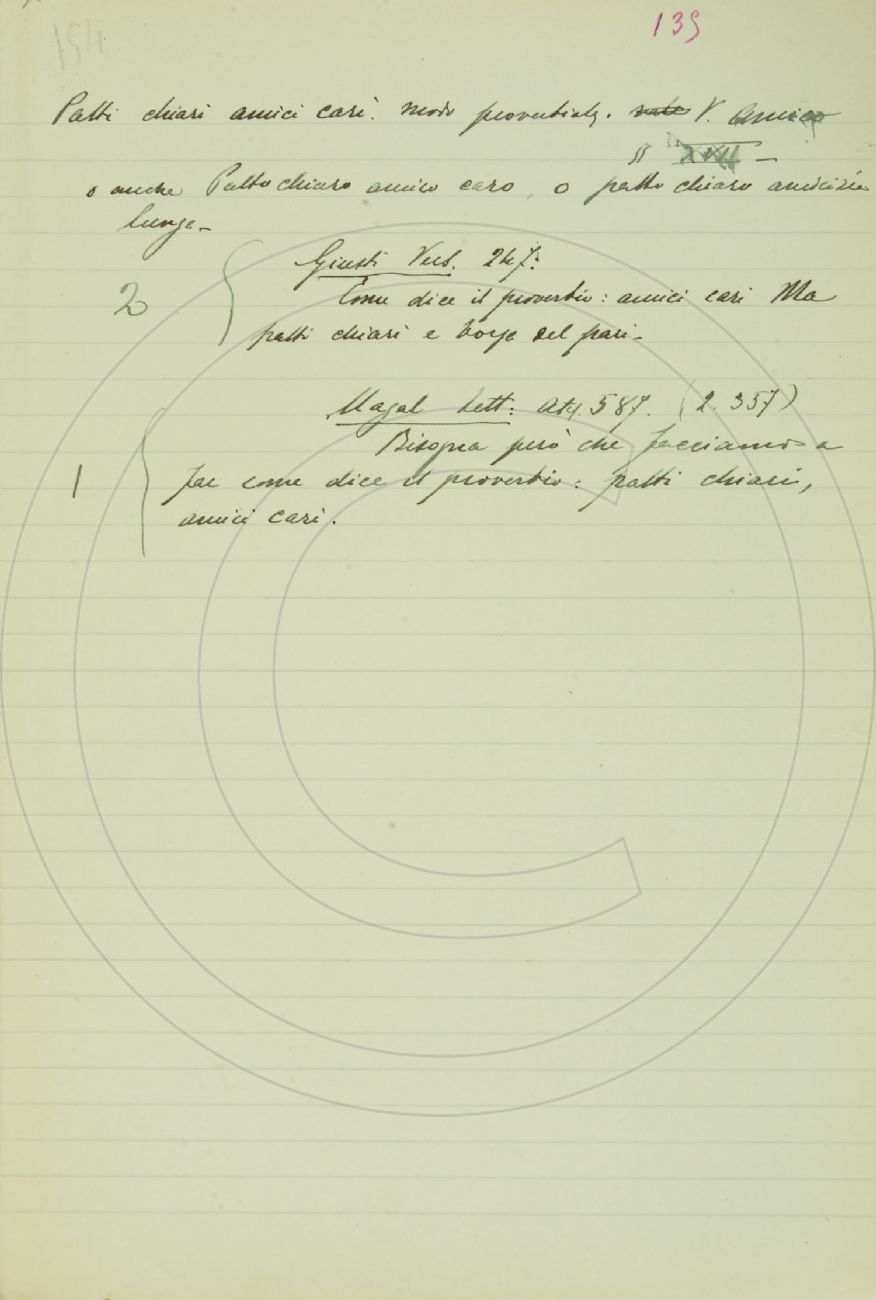 139
Patti chiari amici cari. modo proverbiale. V. Amico
§ XVII —
o anche Patto chiaro amico caro, o patto chiaro amicizia
lunga.
Giusti Verb. 247:
2 Come dice il proverbio: amici cari Ma
patti chiari e borse del pari.
Magal Lett: Atq. 587. (2. 357)
Bisogna però che facciamo a
1 far come dice il proverbio: patti chiari,
amici cari.